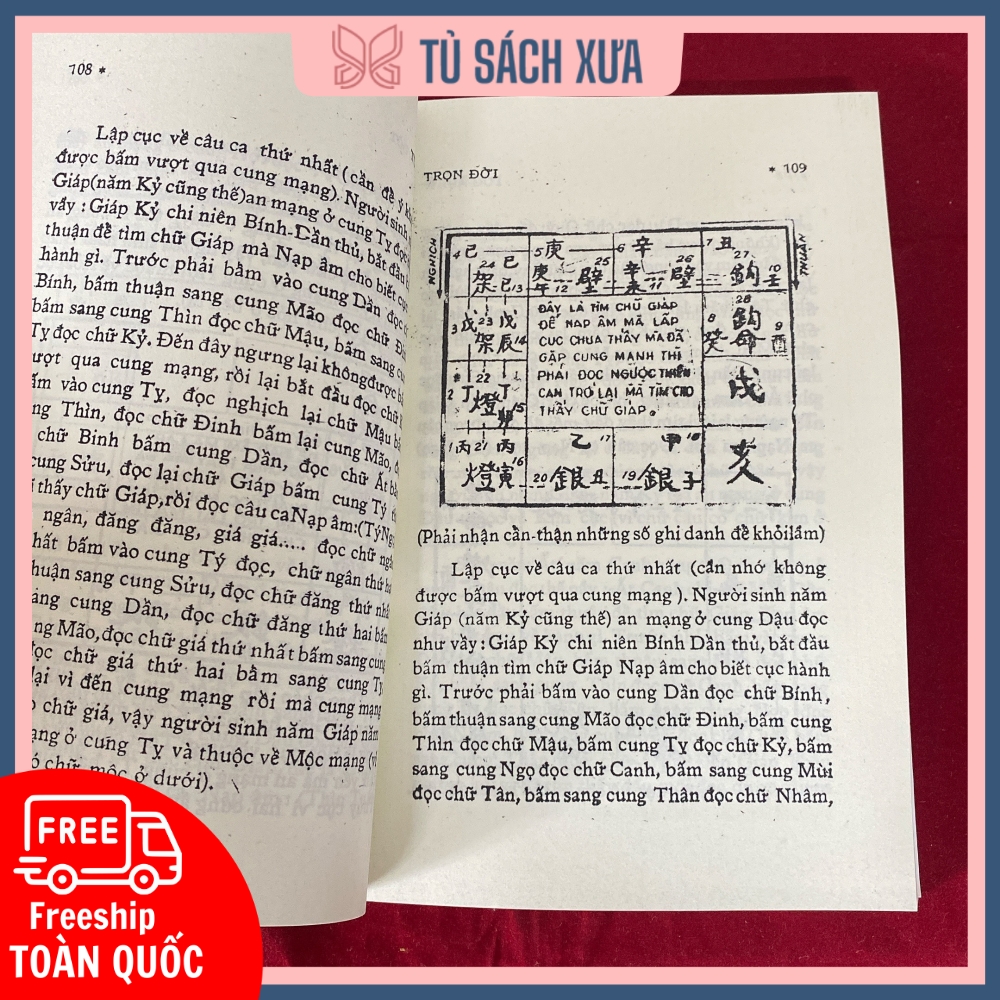 TỦ SÁCH XƯA
108 *
Lập cục về câu ca thứ nhất (cần để ý
được bấm vượt qua cung mạng). Người sinh
Giáp(năm Kỷ cũng thế)an mạng ở cung Tỵ đọc
vầy : Giáp Kỷ chi niên Bính-Dần thủ, bắt đầu
thuận để tìm chữ Giáp mà Nạp âm cho biết cục
hành gì. Trước phải bằm vào cung Dần đọc
Bính, bấm thuận sang cung Mão đọc chữ
bấm sang cung Thìn đọc chữ Mậu, bấm sang
Tỵ đọc chữ Kỷ. Đến đây ngưng lại khôngđược
vượt qua cung mạng, rồi lại bắt đầu đọc chữ
bấm vào cung Tỵ, đọc nghịch lại chữ Mậu
cung Thìn, đọc chữ Đinh bấm lại cung Mão,
chữ Bính bấm cung Dần, đọc chữ Ất
cung Sửu, đọc lại chữ Giáp bấm cung Tý
thấy chữ Giáp,rồi đọc câu caNạp âm:
ngân, đăng đăng, giá giá..... đọc chữ
nhất bấm vào cung Tý đọc, chữ ngân thứ
thuận sang cung Sửu, đọc chữ đăng thứ
cung Dần, đọc chữ đăng thứ hai
Mão, đọc chữ giá thứ nhất bấm sang cung
chữ giá thứ hai bằm sang cung Tỵ
lại vì đến cung mạng rồi mà cung mạng
chữ giá, vậy người sinh năm Giáp
ở cung Tỵ và thuộc về Mộc mạng
chữ mộc ở dưới).
TRỌN ĐỜI * 109
NGHỊCH THUẬN
4 己 24 己 5 庚 25 6 辛 26 7 丑 27
架 巳 13 庚午 12 壁 辛未 11 壁 鈎 10 壬
3 戊 23 戊 28
架 辰 14 8 癸 鈎 命 9 酉
ĐÂY LÀ TÌM CHỮ GIÁP
ĐỂ NẠP ÂM MÀ LẤP
CỤC CHƯA THẤY MÀ ĐÃ
GẶP CUNG MẠNH THÌ
PHẢI ĐỌC NGƯỢC THIÊN
CAN TRỞ LẠI MÀ TÌM CHO
THẤY CHỮ GIÁP.
2 丁 22 丁
燈 卯 15 戌
1 丙 21 丙 乙 17 甲 18
燈 寅 16 20 銀 丑 19 銀 子 亥
(Phải nhận cần-thận những số ghi danh để khỏilầm)
Lập cục về câu ca thứ nhất (cần nhớ không
được bấm vượt qua cung mạng ). Người sinh năm
Giáp (năm Kỷ cũng thế) an mạng ở cung Dậu đọc
như vầy : Giáp Kỷ chi niên Bính Dần thủ, bắt đầu
bấm thuận tìm chữ Giáp Nạp âm cho biết cục hành
gì. Trước phải bấm vào cung Dần đọc chữ Bính,
bấm thuận sang cung Mão đọc chữ Đinh, bấm cung
Thìn đọc chữ Mậu, bấm cung Tỵ đọc chữ Kỷ, bấm
sang cung Ngọ đọc chữ Canh, bấm sang cung Mùi
đọc chữ Tân, bấm sang cung Thân đọc chữ Nhâm,
FREE
Freeship
TOÀN QUỐC